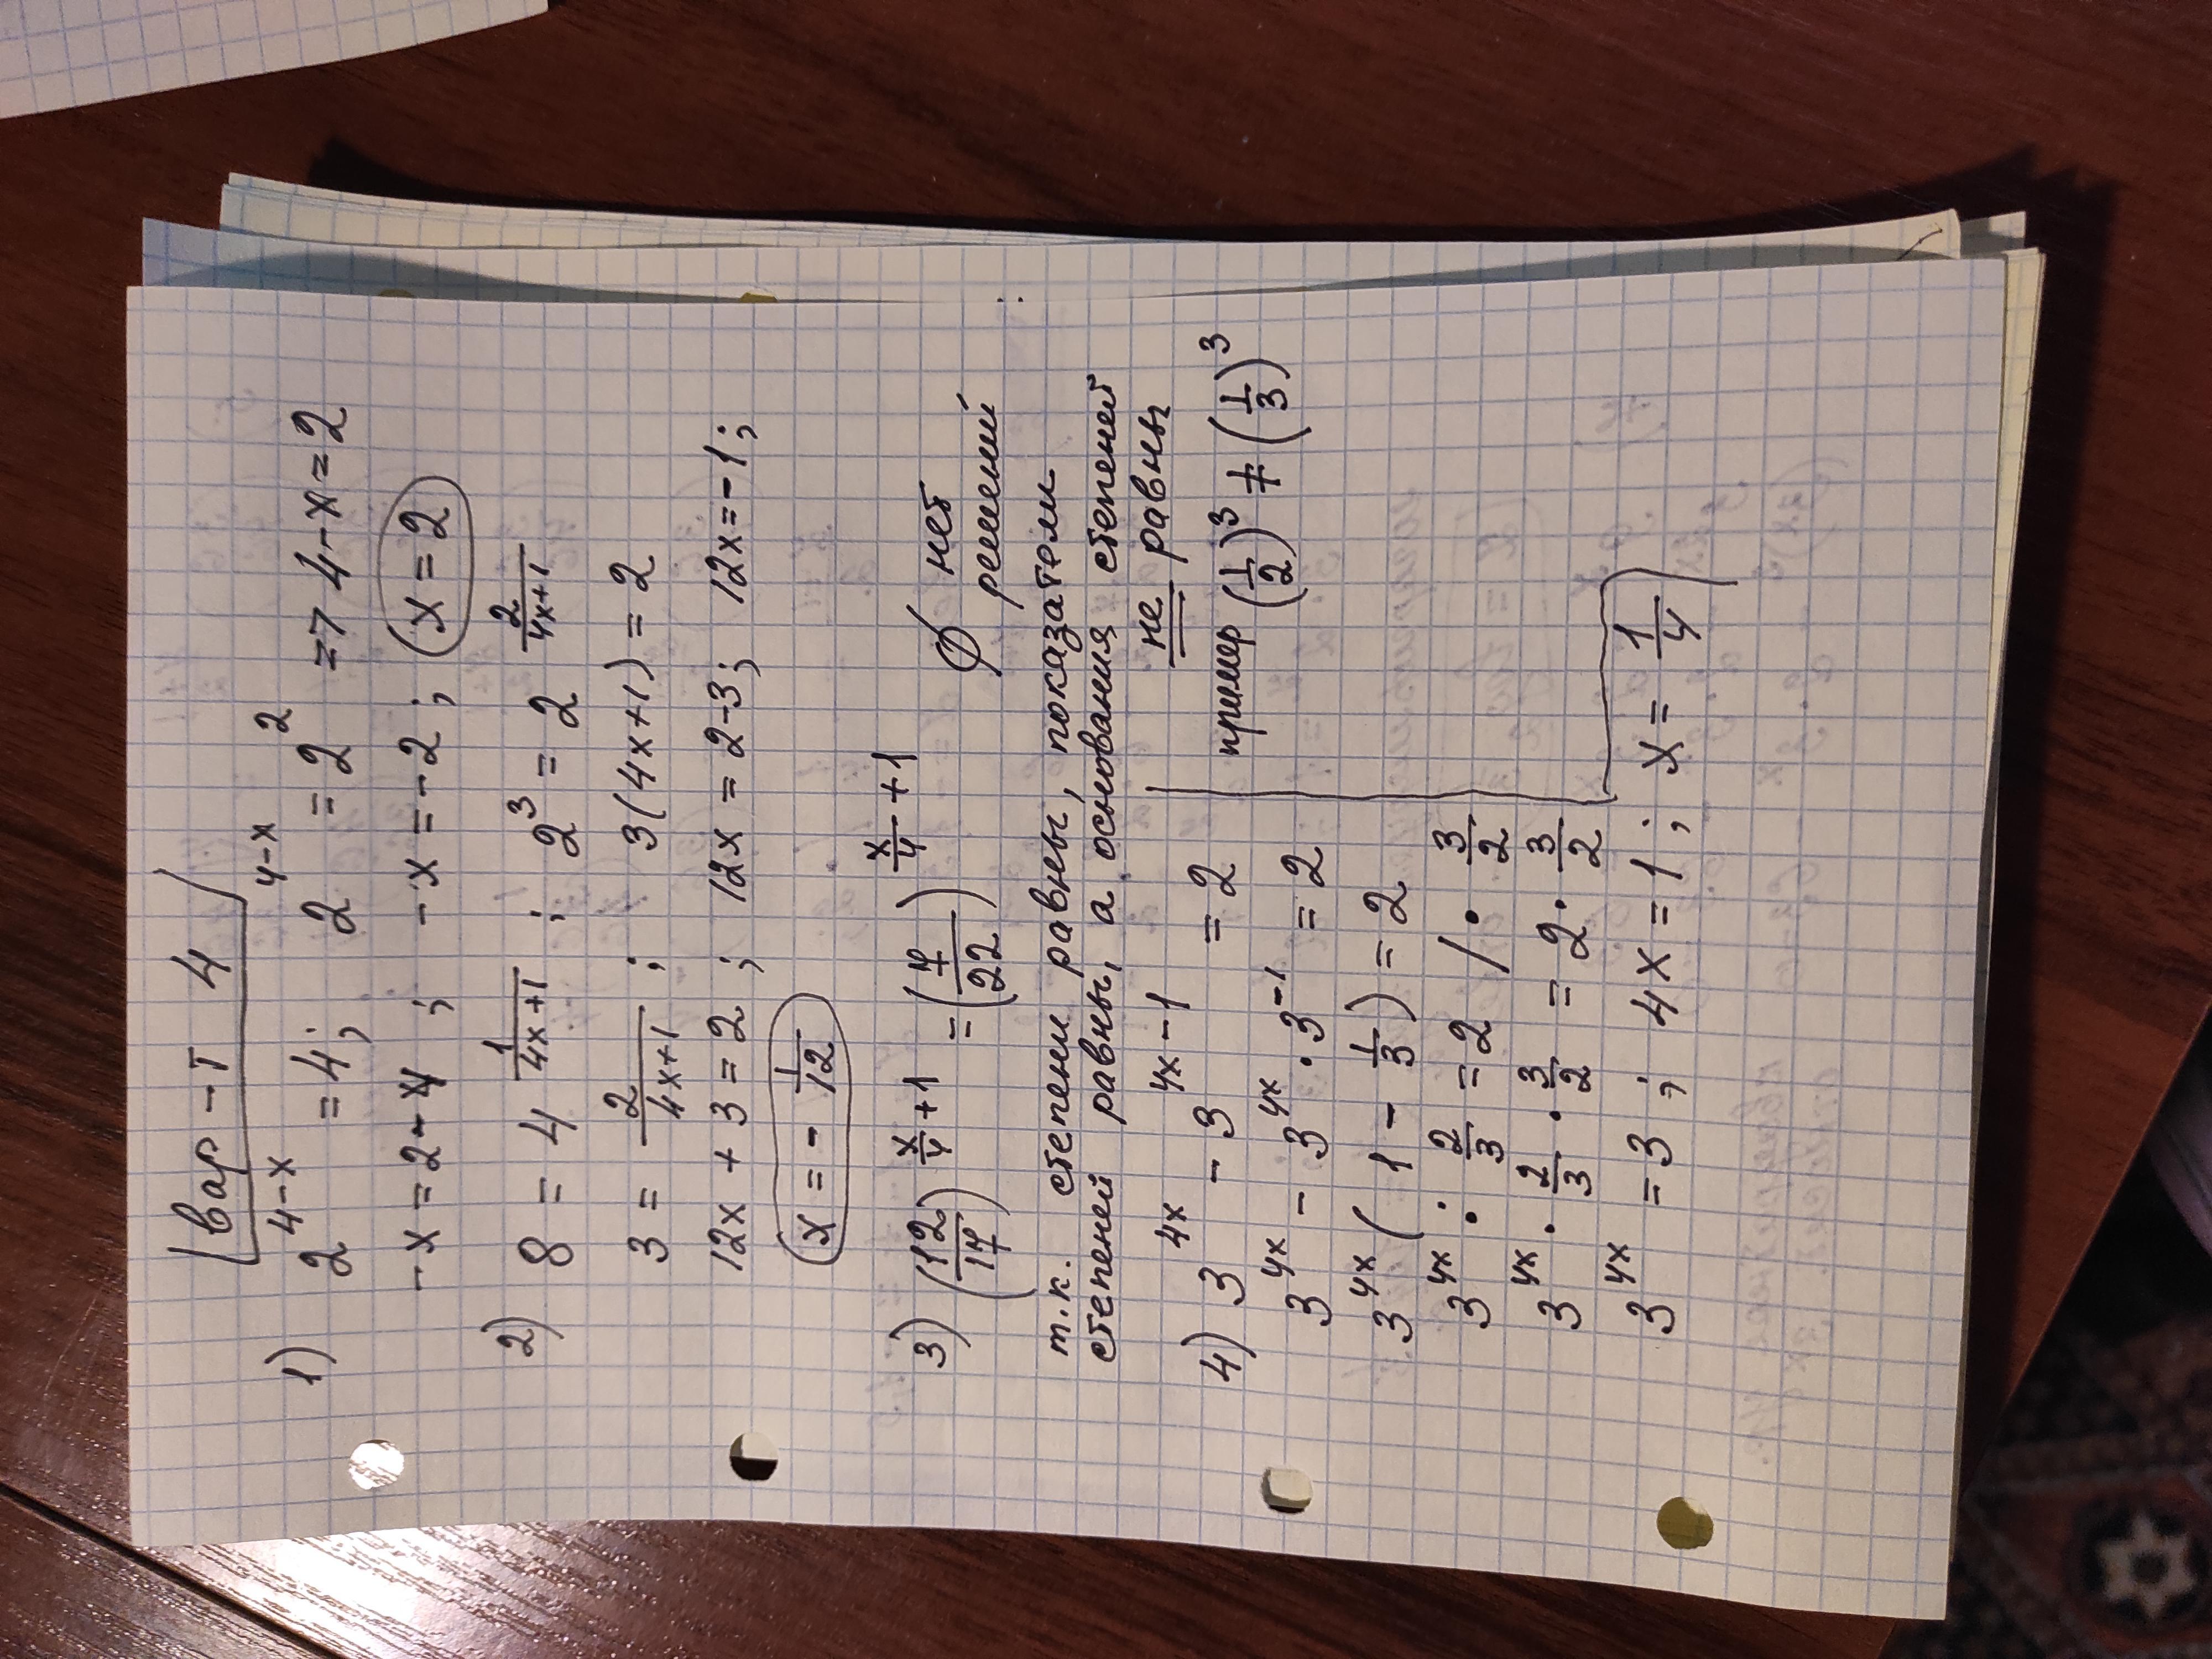 Вар-т 4
1) 2^{4-x} = 4; 2^{4-x} = 2^2 => 4-x = 2
-x = 2-4; -x = -2; x = 2
2) 8 = 4^{\frac{1}{4x+1}}; 2^3 = 2^{\frac{2}{4x+1}}
3 = \frac{2}{4x+1}; 3(4x+1) = 2
12x + 3 = 2; 12x = 2-3; 12x = -1;
x = -\frac{1}{12}
3) (\frac{12}{17})^{\frac{x}{4}+1} = (\frac{7}{22})^{\frac{x}{4}+1} ∅ нет
решений
т.к. степени равны, показатели
степеней равны, а основания степеней
не равны
4) 3^{4x} - 3^{4x-1} = 2
пример (\frac{1}{2})^3 ≠ (\frac{1}{3})^3
3^{4x} - 3^{4x} · 3^{-1} = 2
3^{4x} (1 - \frac{1}{3}) = 2
3^{4x} · \frac{2}{3} = 2 / · \frac{3}{2}
3^{4x} · \frac{2}{3} · \frac{3}{2} = 2 · \frac{3}{2}
3^{4x} = 3; 4x = 1; x = \frac{1}{4}